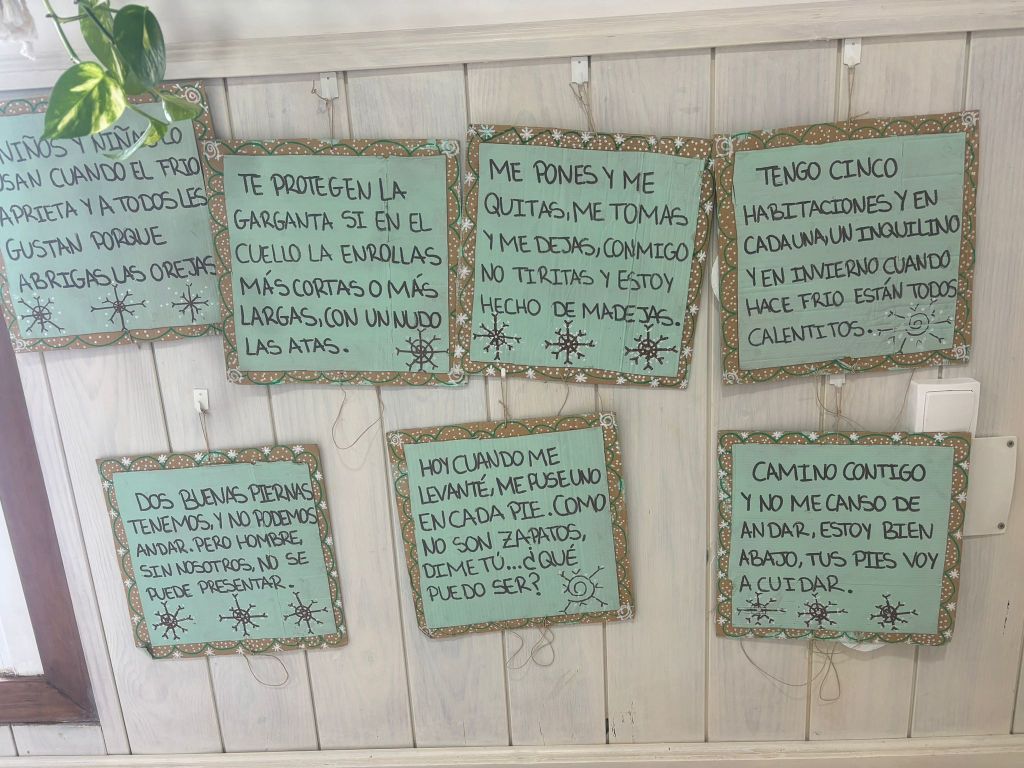 NIÑOS Y NIÑAS LO
USAN CUANDO EL FRIO
APRIETA Y A TODOS LES
GUSTAN PORQUE
ABRIGAS LAS OREJAS
TE PROTEGEN LA
GARGANTA SI EN EL
CUELLO LA ENROLLAS
MÁS CORTAS O MÁS
LARGAS, CON UN NUDO
LAS ATAS.
ME PONES Y ME
QUITAS, ME TOMAS
Y ME DEJAS, CONMIGO
NO TIRITAS Y ESTOY
HECHO DE MADEJAS.
TENGO CINCO
HABITACIONES Y EN
CADA UNA, UN INQUILINO
Y EN INVIERNO CUANDO
HACE FRIO ESTÁN TODOS
CALENTITOS.
DOS BUENAS PIERNAS
TENEMOS, Y NO PODEMOS
ANDAR. PERO HOMBRE,
SIN NOSOTROS, NO SE
PUEDE PRESENTAR.
HOY CUANDO ME
LEVANTÉ, ME PUSE UNO
EN CADA PIE. COMO
NO SON ZAPATOS,
DIME TÚ...¿QUÉ
PUEDO SER?
CAMINO CONTIGO
Y NO ME CANSO DE
ANDAR, ESTOY BIEN
ABAJO, TUS PIES VOY
A CUIDAR.